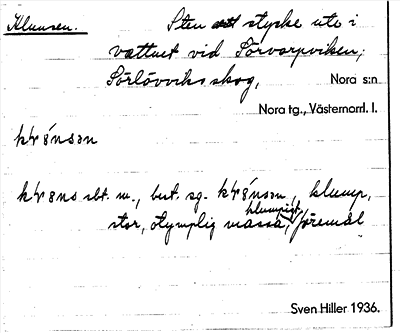 Klunsen. Sten ett stycke ute i
vattnet vid Sörvarpviken,
Sörlövviks skog, Nora s:n
Nora tg., Västernorrl. l.
sbt. m., best. sg. klump,
stor, otymplig massa, klumpigt föremål
Sven Hiller 1936.